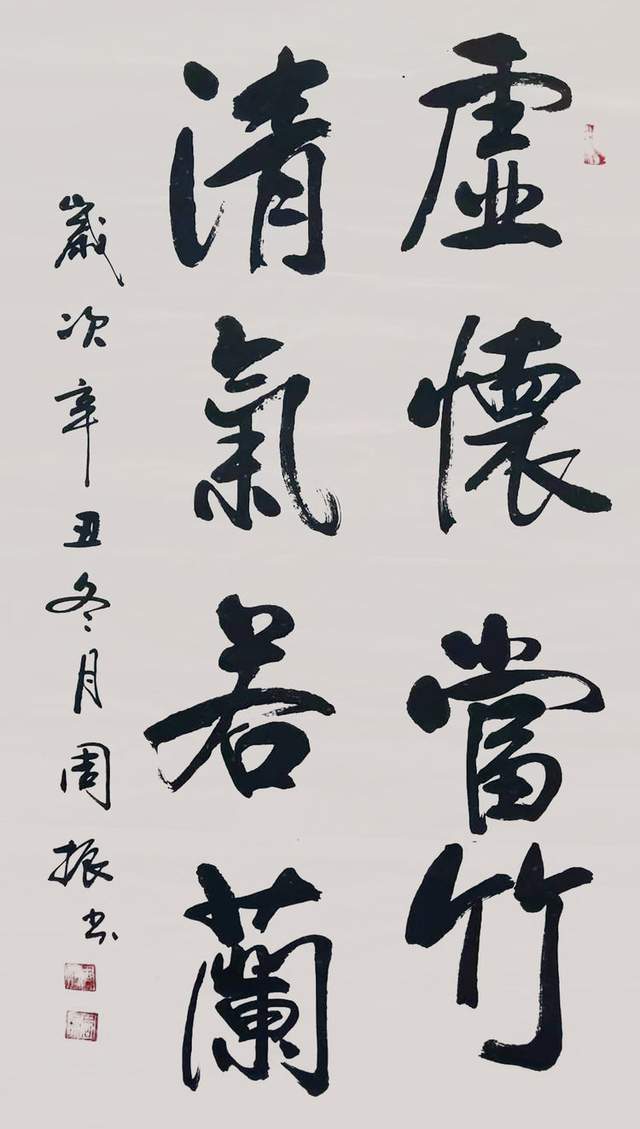 虛懷當竹
清氣若蘭
歲次辛丑冬月周振书